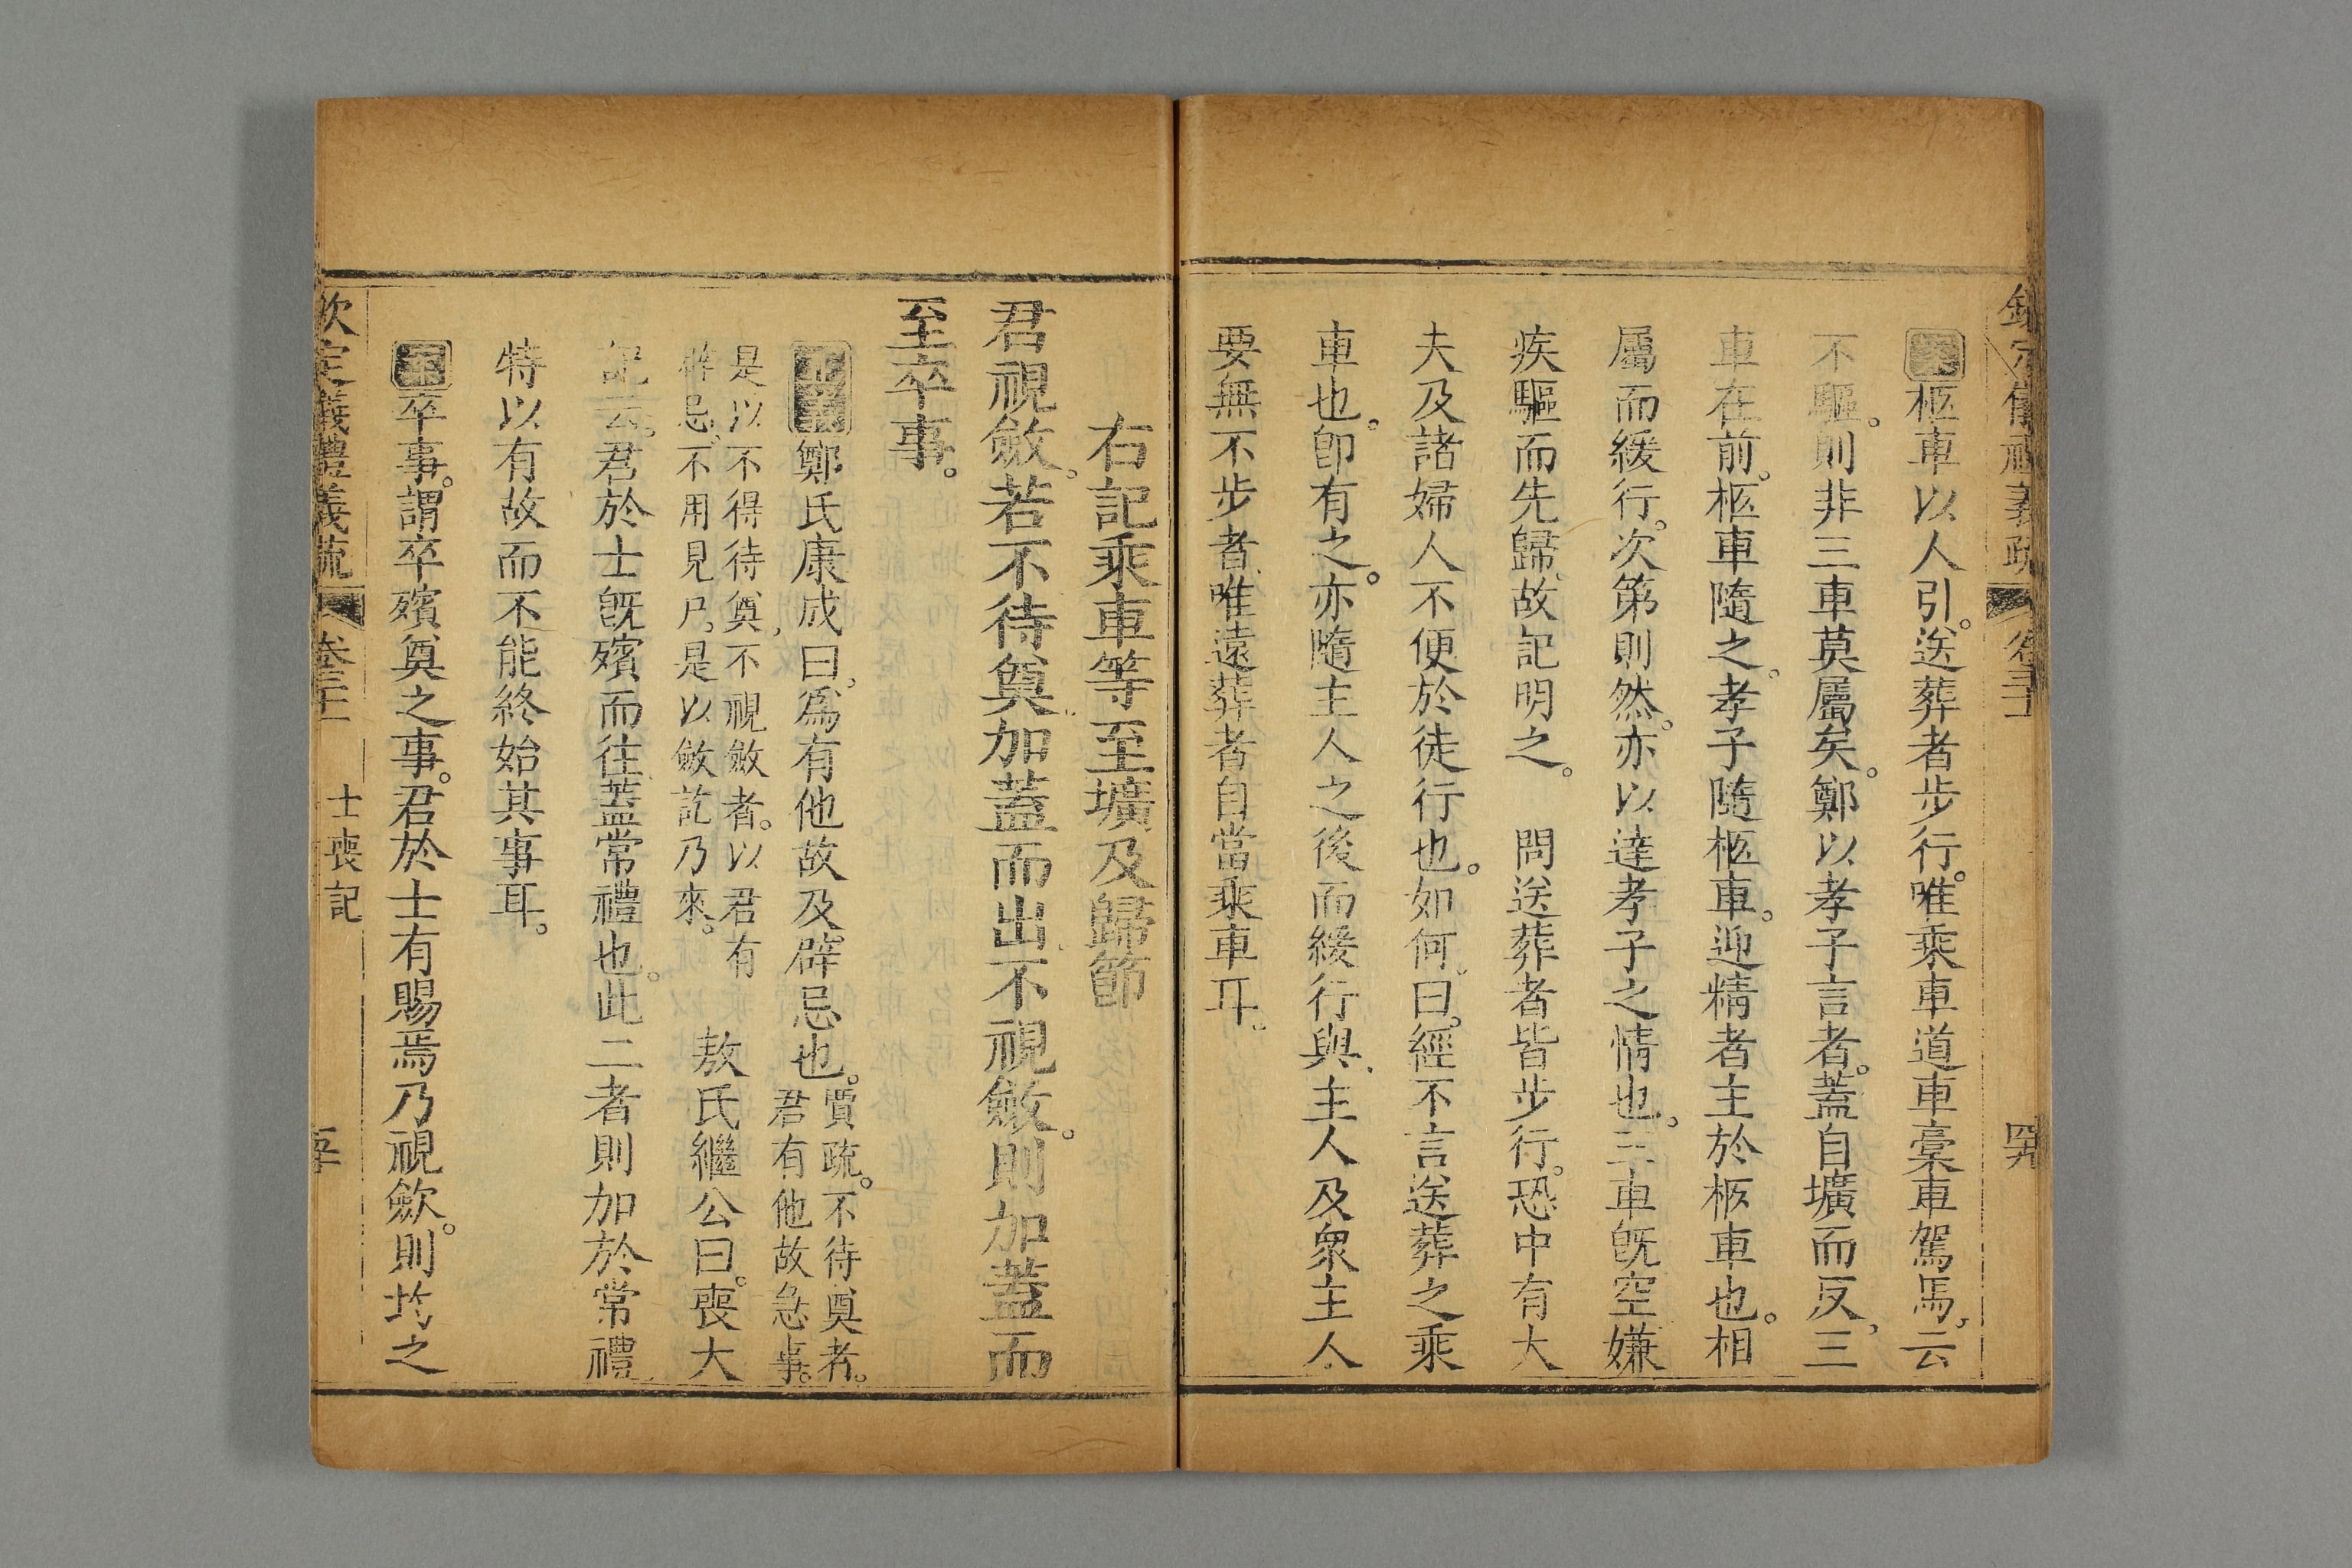 欽定儀禮義疏 卷三十一 罕
案柩車以人引。送葬者步行。唯乘車道車稾車駕馬,云
不驅。則非三車莫屬矣。鄭以孝子言者。蓋自壙而反,三
車在前。柩車隨之。孝子隨柩車。迎精者主於柩車也。相
屬而緩行。次第則然。亦以達孝子之情也。三車旣空嫌
疾驅而先歸、故記明之。 問送葬者皆步行。恐中有大
夫及諸婦人不便於徒行也。如何。曰。經不言送葬之乘
車也。卽有之。亦隨主人之後而緩行與、主人及衆主人
要無不步者、唯遠葬者自當乘車耳。
右記乘車等至壙及歸節
君視斂。若不待奠、加蓋而出、不視斂。則加蓋而
至卒事。
正義鄭氏康成曰,爲有他故及辟忌也。賈疏。不待奠者。
君有他故急事。
是以不得待奠,不視斂者。以君有
辟忌、不用見尸。是以斂訖乃來。 敖氏繼公曰。喪大
記云。君於士旣殯而往、蓋常禮也。此二者則加於常禮、
特以有故而不能終始其事耳。
案卒事。謂卒殯奠之事。君於士有賜焉乃視歛。則均之
欽定儀禮義疏 卷三十一 士喪記 至